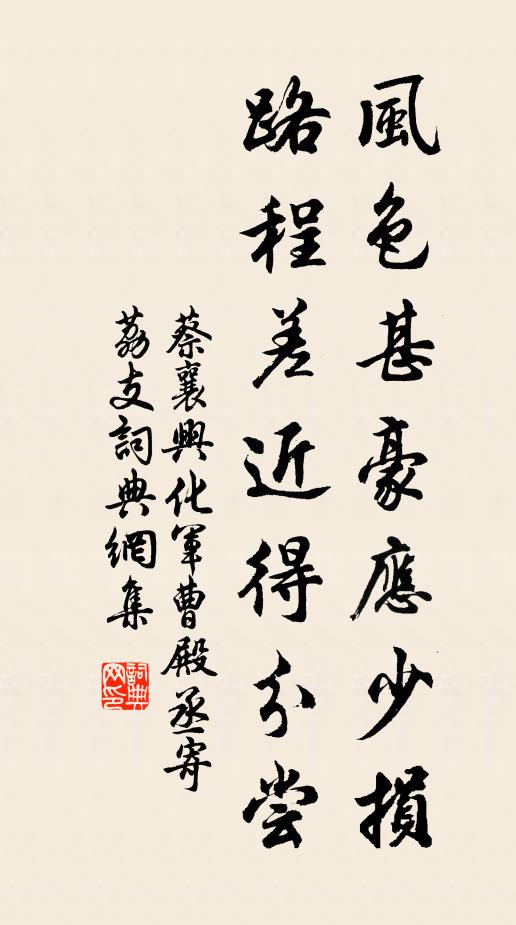 風色甚豪應少損
路程差近得分嘗
蔡襄興化軍曹殿丞寄
荔支詞典網集
詞典网印